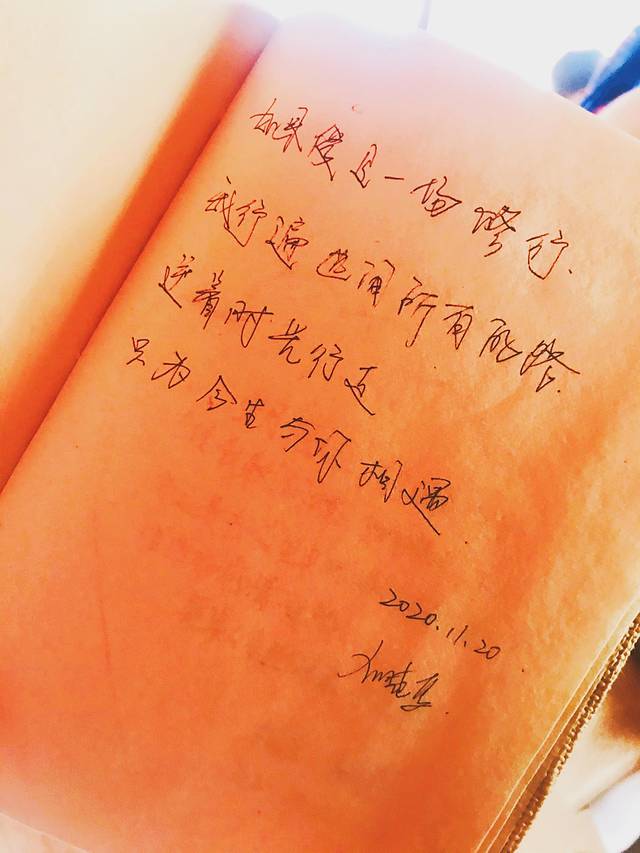 如果爱是一场修行
我行遍世间所有的路
逆着时光行走
只为今生与你相遇
2020.11.20